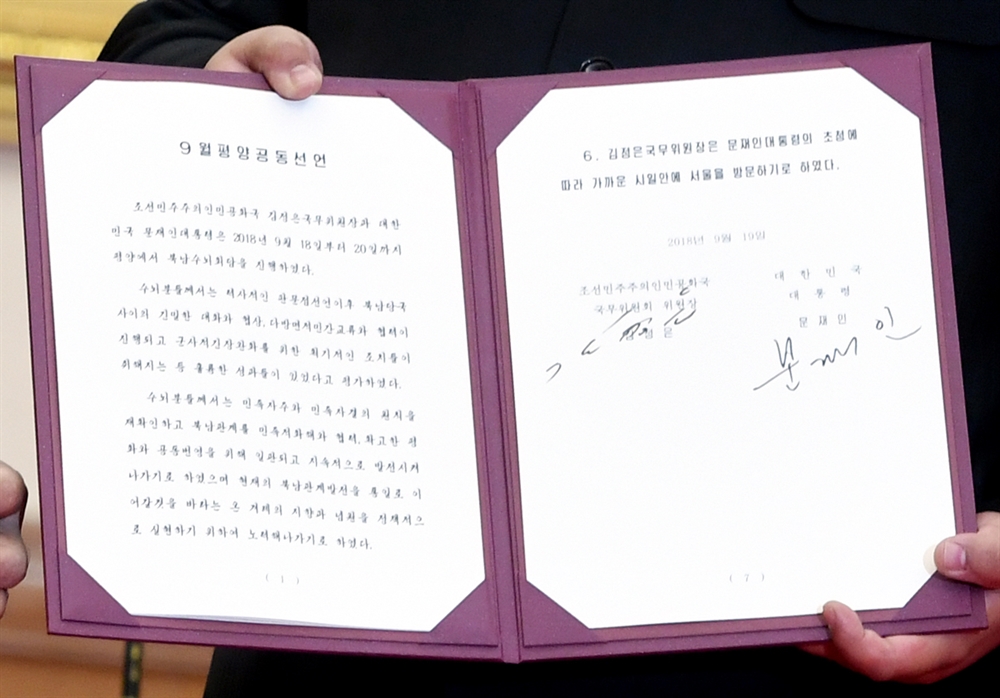 9월평양공동선언
조선민주주의인민공화국 김정은국무위원장과 대한
민국 문재인대통령은 2018년 9월 18일부터 20일까지
평양에서 북남수뇌회담을 진행하였다.
수뇌분들께서는 력사적인 판문점선언이후 북남당국
사이의 긴밀한 대화와 협상, 다방면적민간교류와 협력이
진행되고 군사적긴장완화를 위한 획기적인 조치들이
취해지는 등 훌륭한 성과들이 있었다고 평가하였다.
수뇌분들께서는 민족자주와 민족자결의 원칙을
재확인하고 북남관계를 민족적화해와 협력, 확고한 평
화와 공동번영을 위해 일관되고 지속적으로 발전시켜
나가기로 하였으며 현재의 북남관계발전을 통일로 이
어갈것을 바라는 온 겨레의 지향과 념원을 정책적으
로 실현하기 위하여 노력해나가기로 하였다.
( 1 )
6. 김정은국무위원장은 문재인대통령의 초청에
따라 가까운 시일안에 서울을 방문하기로 하였다.
2018년 9월 19일
조선민주주의인민공화국
국무위원회 위원장
김정은
대한민국
대통령
문재인
문재인
( 7 )